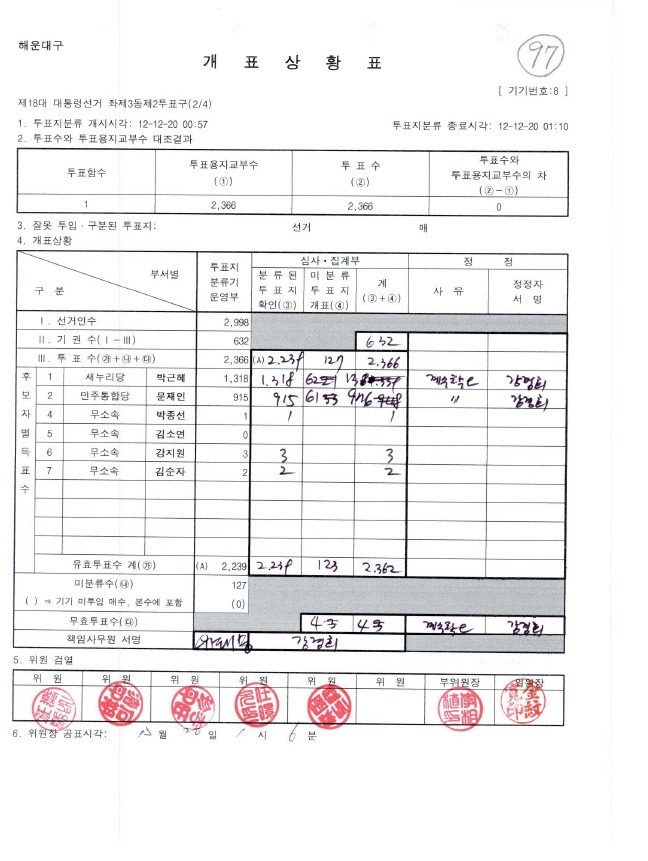 해운대구
97
개 표 상 황 표
[ 기기번호:8 ]
제18대 대통령선거 좌제3동제2투표구(2/4)
1. 투표지분류 개시시각: 12-12-20 00:57 투표지분류 종료시각: 12-12-20 01:10
2. 투표수와 투표용지교부수 대조결과
투표함수 투표용지교부수 (①) 투 표 수 (②) 투표수와 투표용지교부수의 차 (②-①)
1 2,366 2,366 0
3. 잘못 투입·구분된 투표지: 선거 매
4. 개표상황
구 분 부서별 투표지 분류기 운영부 심사·집계부 정 정
분 류 된 투 표 지 확인(③) 미 분 류 투 표 지 개표(④) 계 (③+④) 사 유 정정자 서 명
Ⅰ. 선거인수 2,998
Ⅱ. 기 권 수(Ⅰ-Ⅲ) 632 632
Ⅲ. 투 표 수(㉮+㉯+㉰) 2,366 (A) 2.239 127 2.366
후보자별득표수
1 새누리당 박근혜 1,318 1.318 62 강경희
2 민주통합당 문재인 915 915 61 976 〃 강경희
4 무소속 박종선 1 1 1
5 무소속 김소연 0
6 무소속 강지원 3 3 3
7 무소속 김순자 2 2 2
유효투표수 계(㉮) (A) 2,239 2.239 123 2.362
미분류수(㉯) 127
( ) ⇒ 기기 미투입 매수, 본수에 포함 (0)
무효투표수(㉰) 4 4 강경희
책임사무원 서명 강경희
5. 위원 검열
위 원 위 원 위 원 위 원 위 원 위 원 부위원장 위원장
6. 위원장 공표시각: 12 월 20 일 1 시 6 분